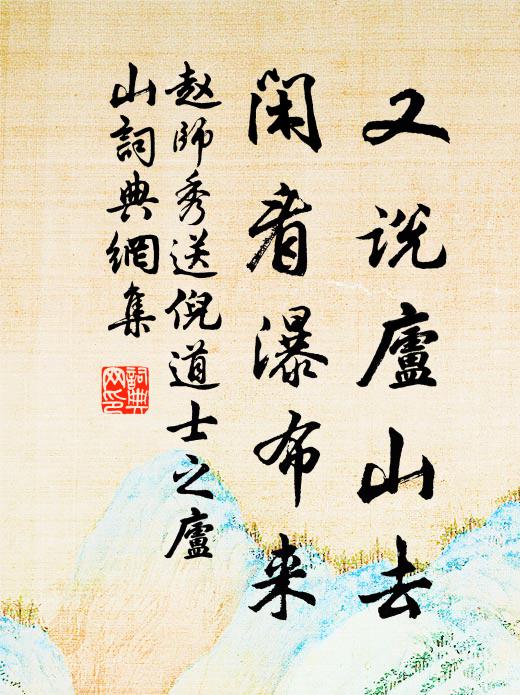 又说廬山去
闲看瀑布来
赵師秀送倪道士之廬
山詞典網集
詞典
网印